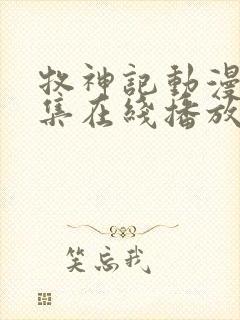 牧神記動漫
集在綫播放
笑忘我